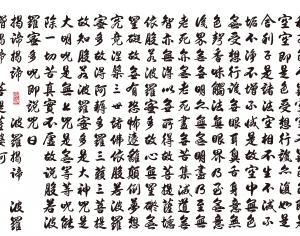 空空即是色受想行識亦復如是
舍利子是諸法空相不生不滅不
垢不淨不增不減是故空中無色
無受想行識無眼耳鼻舌身意無
色聲香味觸法無眼界乃至無意
識界無無明亦無無明盡乃至無
老死亦無老死盡無苦集滅道無
智亦無得以無所得故菩提薩埵
依般若波羅蜜多故心無罣礙無
罣礙故無有恐怖遠離顛倒夢想
究竟涅槃三世諸佛依般若波羅
蜜多故得阿耨多羅三藐三菩提
故知般若波羅蜜多是大神咒是
大明咒是無上咒是無等等咒能
除一切苦真實不虛故說般若波
羅蜜多咒即說咒曰
揭諦揭諦 波羅揭諦 波羅
僧揭諦 菩提薩婆訶